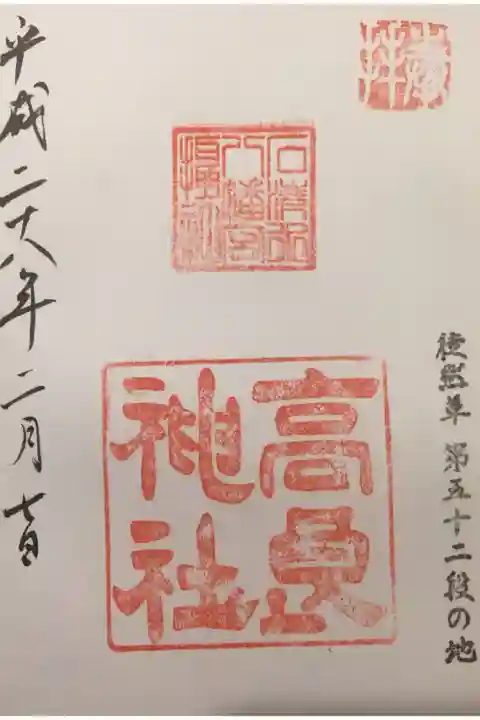 奉拝
徒然草 第五十二段の地
石清水
八幡宮
摂社
高良
神社
平成二十八年二月七日